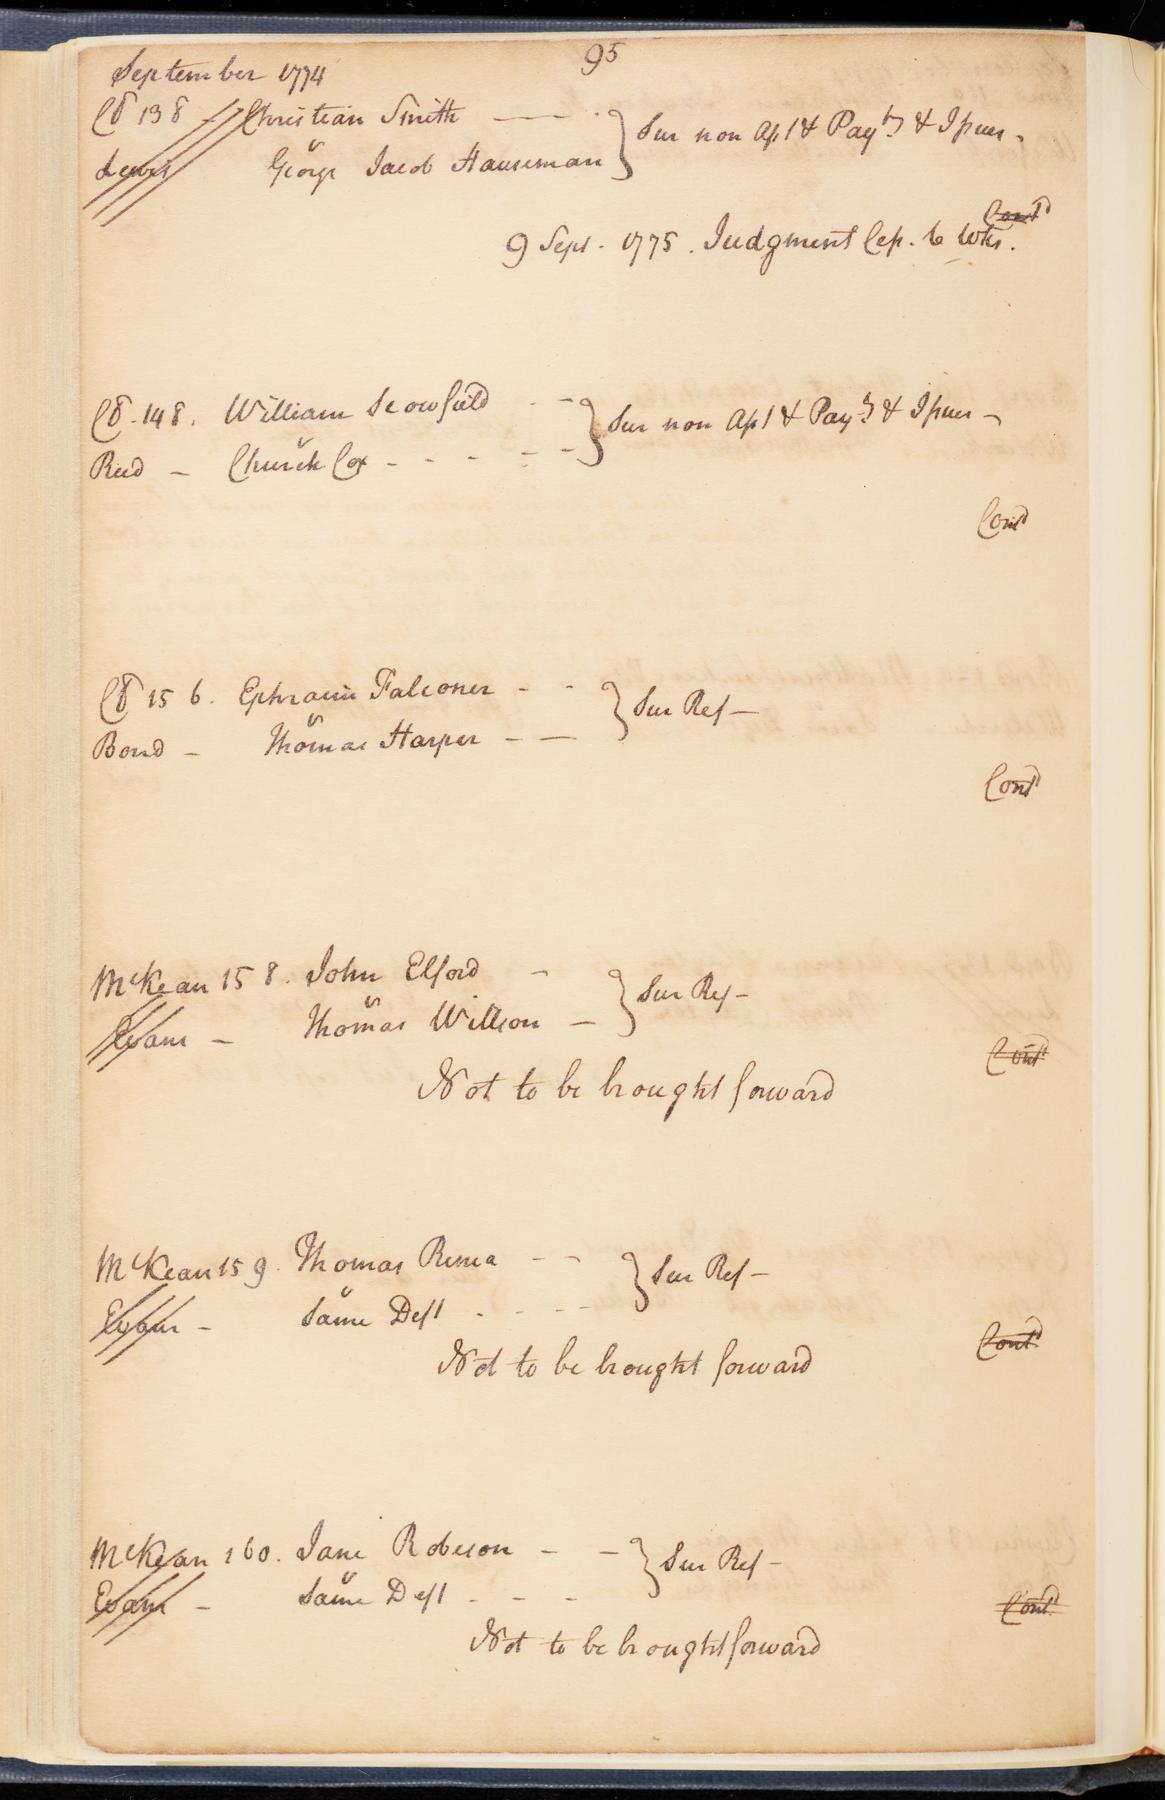 95
September 1774
Cd 138 - Christian Smith
v
Lewis George Jacob Hauseman } Sur non Ass't & Pay't & Issues -
Cont'd
9 Sept. 1775. Judgment Cep. 6 Wks.
Cd. 148. William Scowfield - - } Sur non Ass't & Pay't & Issues -
v
Reed - Church Cox - - - - -
Cont'd
Cd 156. Ephraim Falconer - - } Sur Ref -
v
Bond - Thomas Harper - -
Cont'd
McKean 158. John Elford - } Sur Ref -
v
Evans - Thomas Willson -
Cont'd
Not to be brought forward
McKean 159. Thomas - - } Sur Ref -
v
Evans - Same Deft - - - -
Cont'd
Not to be brought forward
McKean 160. Jane Robeson - - } Sur Ref -
v
Evans - Same Deft - - -
Cont'd
Not to be brought forward